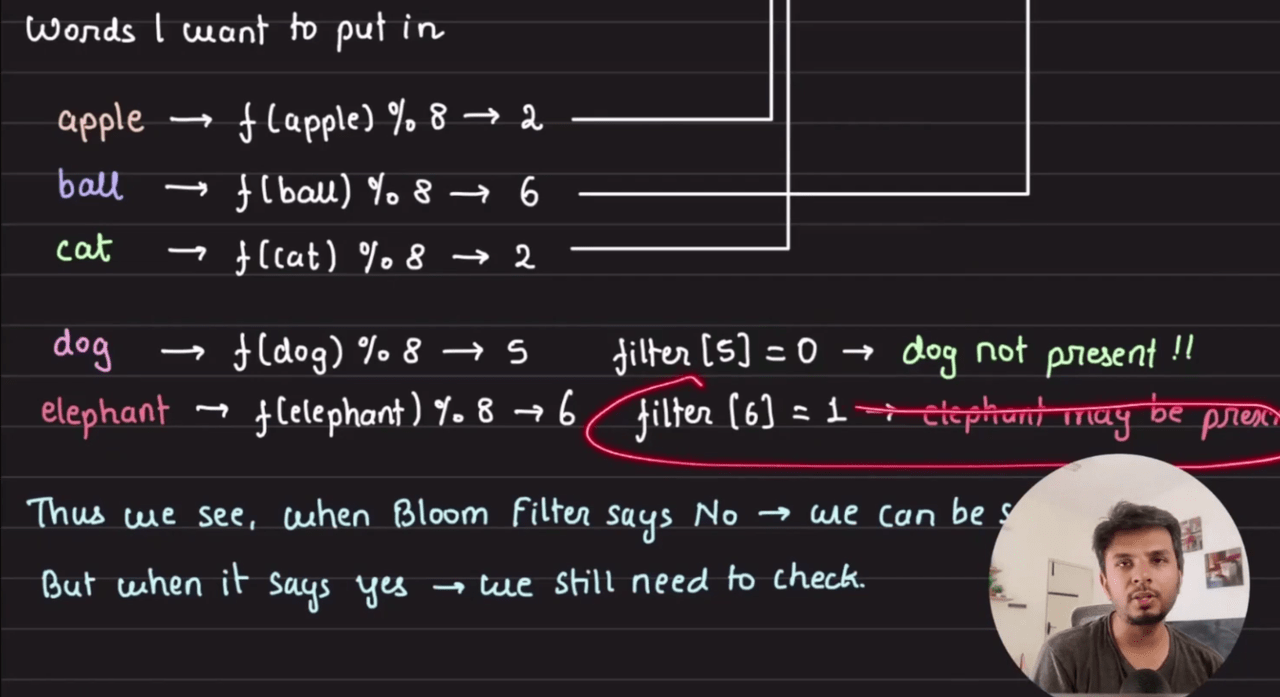 Words I want to put in
apple → f(apple) % 8 → 2
ball → f(ball) % 8 → 6
cat → f(cat) % 8 → 2
dog → f(dog) % 8 → 5 filter [5] = 0 → dog not present !!
elephant → f(elephant) % 8 → 6 filter [6] = 1 → elephant may be
Thus we see, when Bloom Filter says No → we can be
But when it says yes → we still need to check.